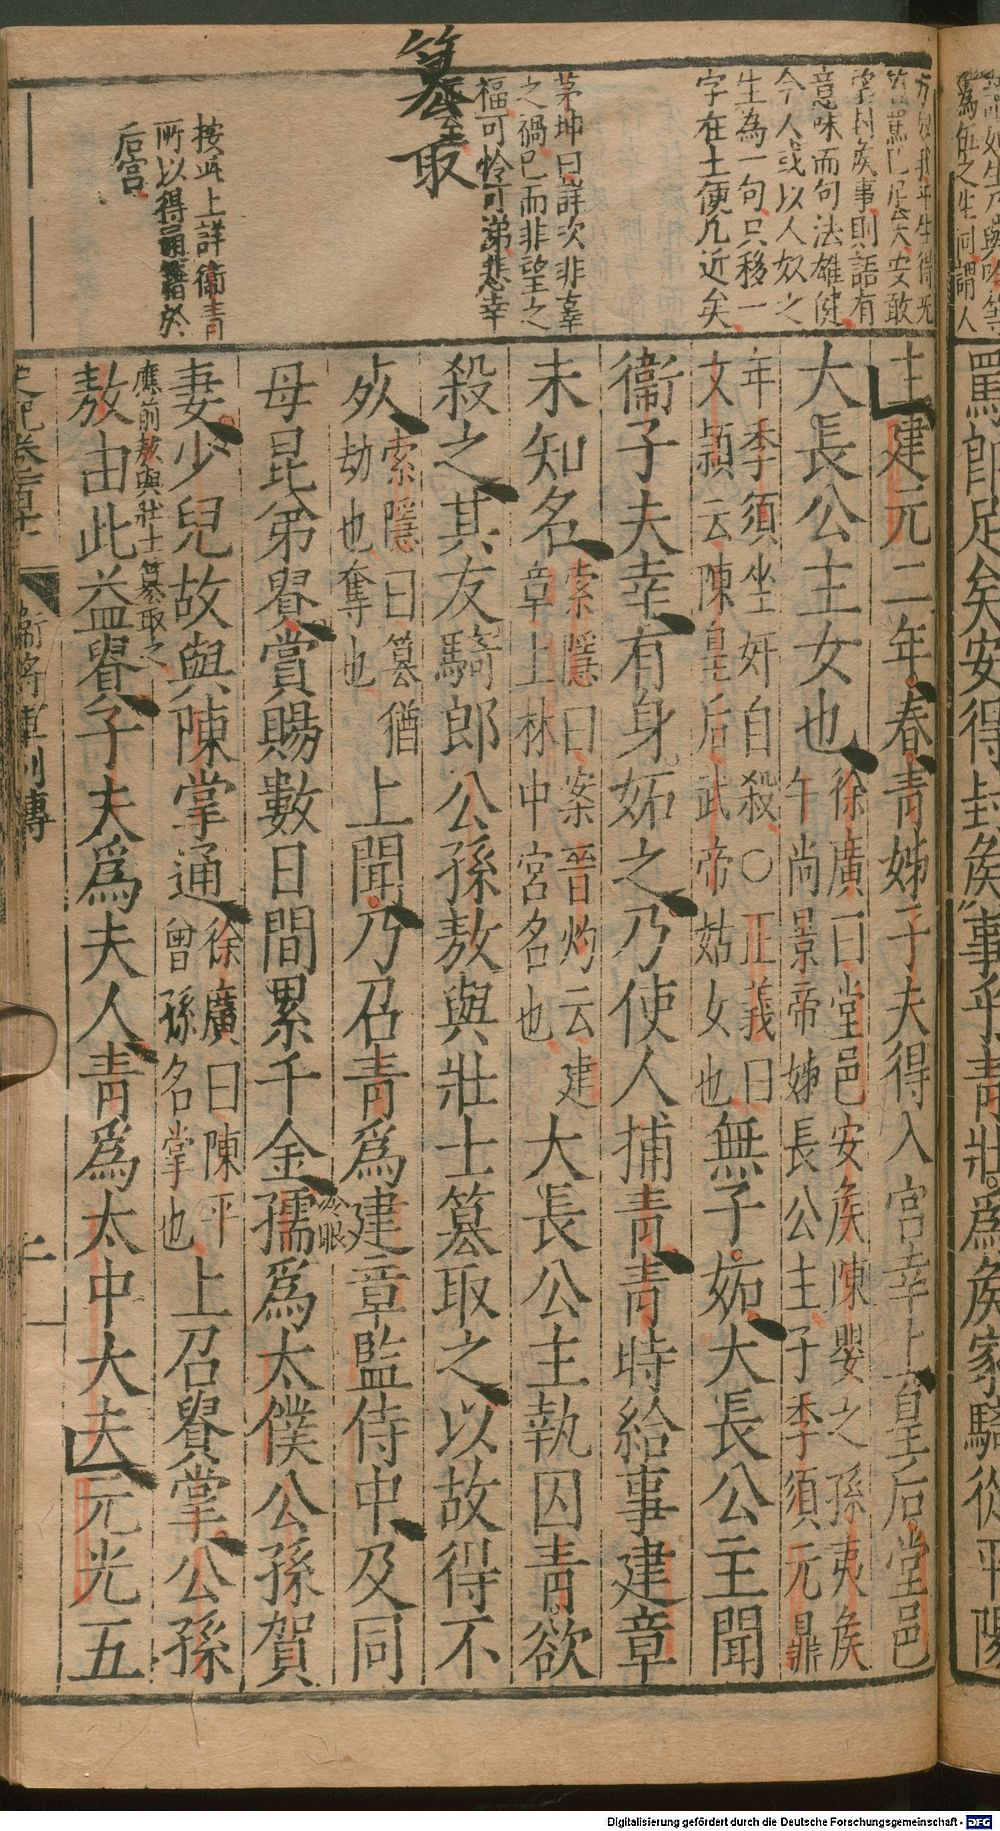 篡取
意味而句法雄健
今人或以人奴之
生為一句只移一
字在土便凡近矣
茅坤曰詳次非辜
之禍已而非望之
福可怜可涕悲幸
按此上詳衛青
所以得通籍於
后宮
主建元二年春青姊子夫得入宮幸上皇后堂邑
大長公主女也徐廣曰堂邑安矦陳嬰之孫夷矦午尚景帝姊長公主子季須元鼎
年季須坐奸自殺〇正義曰文頴云陳皇后武帝姑女也無子妬大長公主聞
衞子夫幸有身妬之乃使人捕青青時給事建章
未知名索隱曰案晉灼云建章上林中宮名也大長公主執囚青欲
殺之其友騎郎公孫敖與壯士篡取之以故得不
死索隱曰篡猶劫也奪也上聞乃召青爲建章監侍中及同
母昆弟貴賞賜數日間累千金孺爲太僕公孫賀
妻少兒故與陳掌通徐廣曰陳平曾孫名掌也上召貴掌公孫
應前敖與壯士篡取之
敖由此益貴子夫爲夫人青爲太中大夫元光五
史記卷一百十一 衞將軍列傳
罵卽足矣安得封矦事乎青壯爲矦家騎從平陽
Digitalisierung gefördert durch die Deutsche Forschungsgemeinschaft - DFG